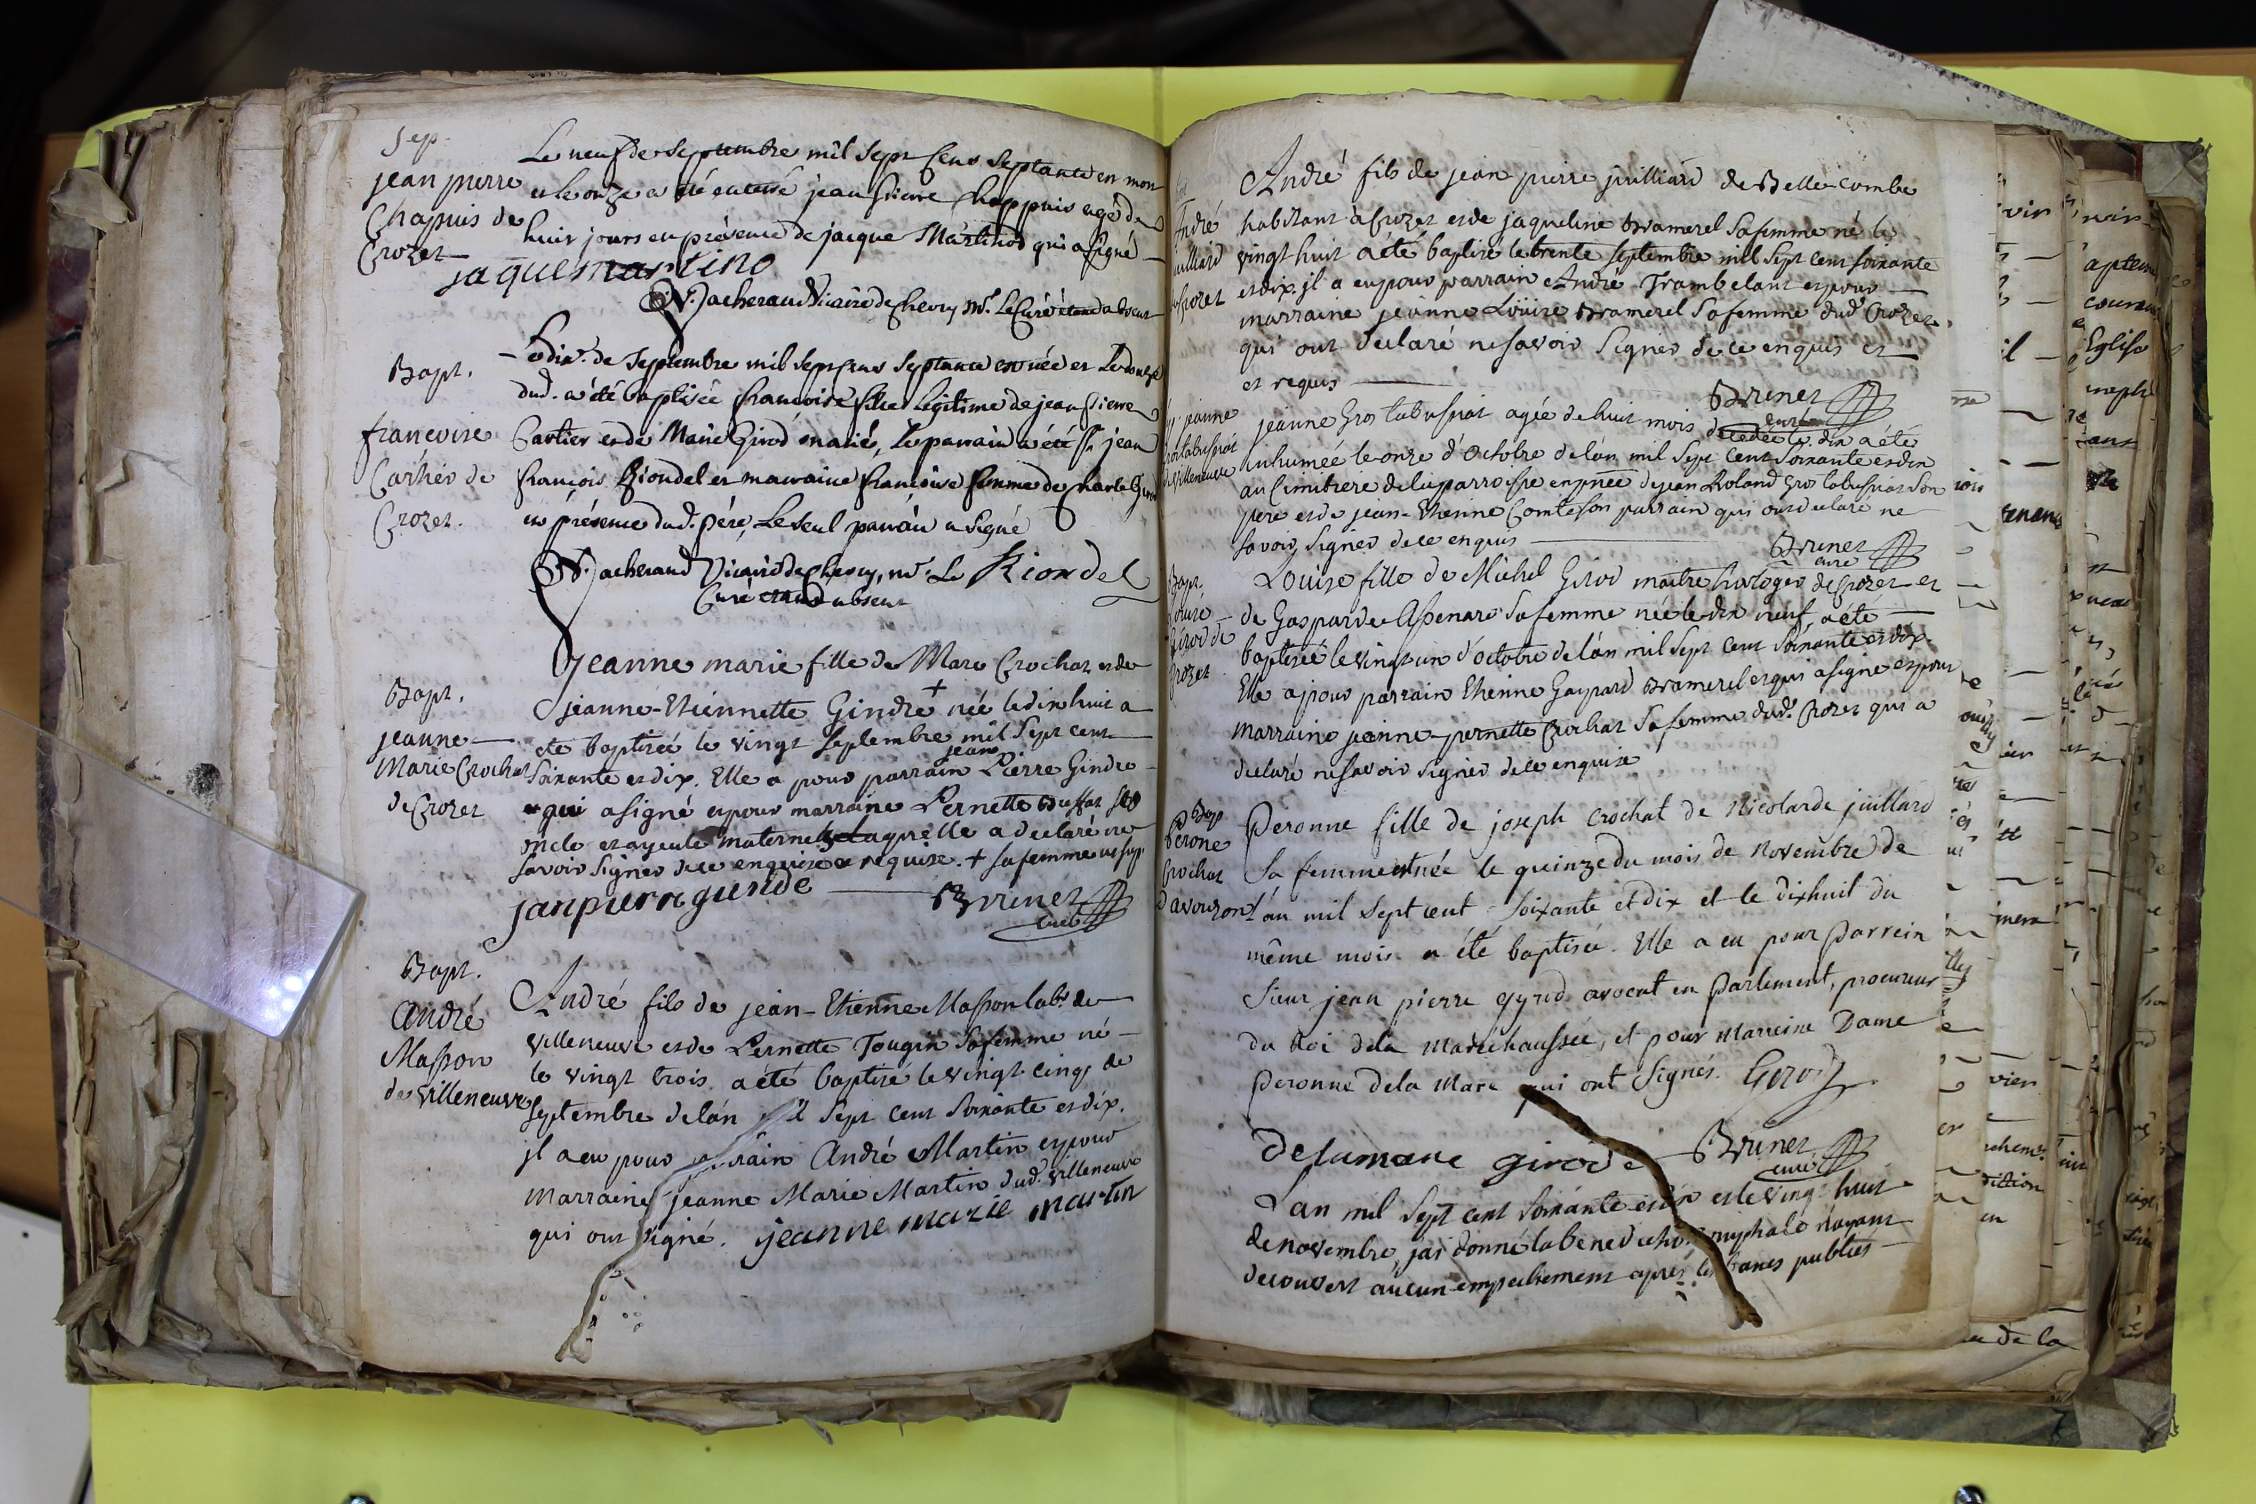 Sep.
jean pierre
Chapuis de
Crozet
Le neuf de Septembre mil Sept Cens Septante en mort
et le onze a été enterré jean pierre Chappuis agé de
huit jours en présence de jacque Martinod qui a signé
jaque martino
Vicaire de Chevry Mr. Le Curé étand absent
Bapt.
francoise
Cartier de
Crozet.
Le dix de Septembre mil Sept Cens Septante est née et Le douze
dud. a été baptisée francoise fille Légitime de jean pierre
Cartier et de Marie Girod mariés, Le parrain a été Sr jean
françois Riondel et marraine francoise femme de Charle Girod
en présence dud. Pére, Le Seul parrain a Signé
Vicaire de Chevry, Mr. Le Riondel
Curé étand absent
Bapt.
jeanne
Marie Crochat
de Crozet
jeanne marie fille de Marc Crochat et de
jeanne-Etiennette Gindre + née le dix huit a
été baptisée le vingt Septembre mil Sept cent
Soixante et dix. Elle a pour parrain jean Pierre Gindre
qui a signé et pour marraine Pernette Buffat Ses
oncle et ayeule maternels laquelle a declaré ne
savoir signer de ce enquise et requise. + sa femme
Brunet
curé
Bapt.
André
Masson
de villeneuve
André fils de jean-Etienne Masson labr de
villeneuve et de Pernette Tougin sa femme né
le vingt trois a été baptisé le vingt cinq de
septembre de l'án mil Sept cent Soixante et dix.
il a eu pour parrain André Martin et pour
marraine jeanne Marie Martin dud. villeneuve
qui ont signé. jeanne marie martin
André
juilliard
Crozet
André fils de jean pierre juilliard de Belle-combe
habitant à Crozet et de jaqueline Bramerel sa femme né le
vingt huit a été baptisé le trente septembre mil Sept cent soixante
et dix il a eu pour parrain André Trambelant et pour
marraine jeanne Louise Bramerel Sa femme dud. Crozet
qui ont declaré ne savoir signer de ce enquis et
et requis
Brunet
curé
jeanne
de villeneuve
jeanne Gros labussiat agée de huit mois décédée le dix a été
inhumée le onze d'Octobre de l'án mil Sept Cent Soixante et dix
au Cimitiere de la parroisse en présence de jean Roland Gros labussiat son
pere et de jean-Etienne Comte son parrain qui ont declaré ne
savoir signer de ce enquis
Brunet
curé
Bapt.
Louise
Girod de
Crozet
Louise fille de Michel Girod maitre horloger de Crozet et
de Gasparde Apenard sa femme née le dix neuf, a été
baptisée le vingt un d'octobre de l'án mil Sept Cent Soixante et dix.
Elle a pour parrain Etienne Gaspard Bramerel et qui a signé et pour
marraine jeanne-pernette Crochat Sa femme dud. Crozet qui a
declaré ne savoir signer de ce enquise
Bap
Perone
Crochat
d'avouzon
Peronne fille de joseph Crochat de Nicolarde juillard
Sa femme est née le quinze du mois de Novembre de
l'án mil sept cent soixante et dix et le dixhuit du
même mois a été baptisée. Elle a eu pour Parrein
Sieur jean pierre Gyrod avocat en Parlement, procureur
du Roi de la Maréchaussée, et pour Marreine Dame
Peronne de la Mare qui ont Signés. Girod
Delamare girod
Brunet
curé
L'an mil Sept cent Soixante et dix et le vingt huit
de novembre, j'ai donné la benediction nuptiale n'ayant
decouvert aucun empechement après les bancs publiés
vin
il
tenant
vier
diction
en
Eglise
de la